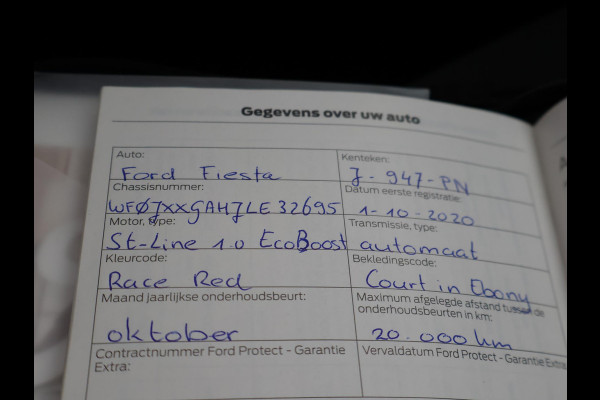 Gegevens over uw auto
Auto: Kenteken:
Ford Fiesta J-947-PN
Chassisnummer: Datum eerste registratie:
WFØJXXGAHJLE32695 1-10-2020
Motor, type: Transmissie, type:
St-Line 1.0 EcoBoost automaat
Kleurcode: Bekledingscode:
Race Red Court in Ebony
Maand jaarlijkse onderhoudsbeurt: Maximum afgelegde afstand tussen de
onderhoudsbeurten in km:
oktober 20.000 km
Contractnummer Ford Protect - Garantie Vervaldatum Ford Protect - Garantie Extra
Extra: